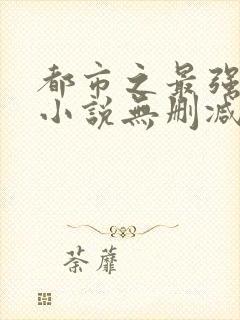 都市之最强
小说無删减
荼蘼